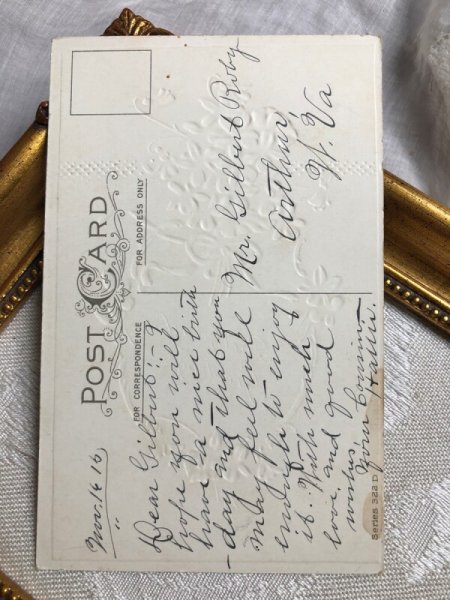 POST CARD
FOR CORRESPONDENCE
FOR ADDRESS ONLY
Nov. 16 16
Dear Gilbert:-
I hope you will
have a nice birth
-day and that you
may feel well
enough to enjoy
it. With much
love, and good
wishes
Your Cousin
Hattie.
Mr. Gilbert Roby
Arthur,
W. Va
Series 322 D